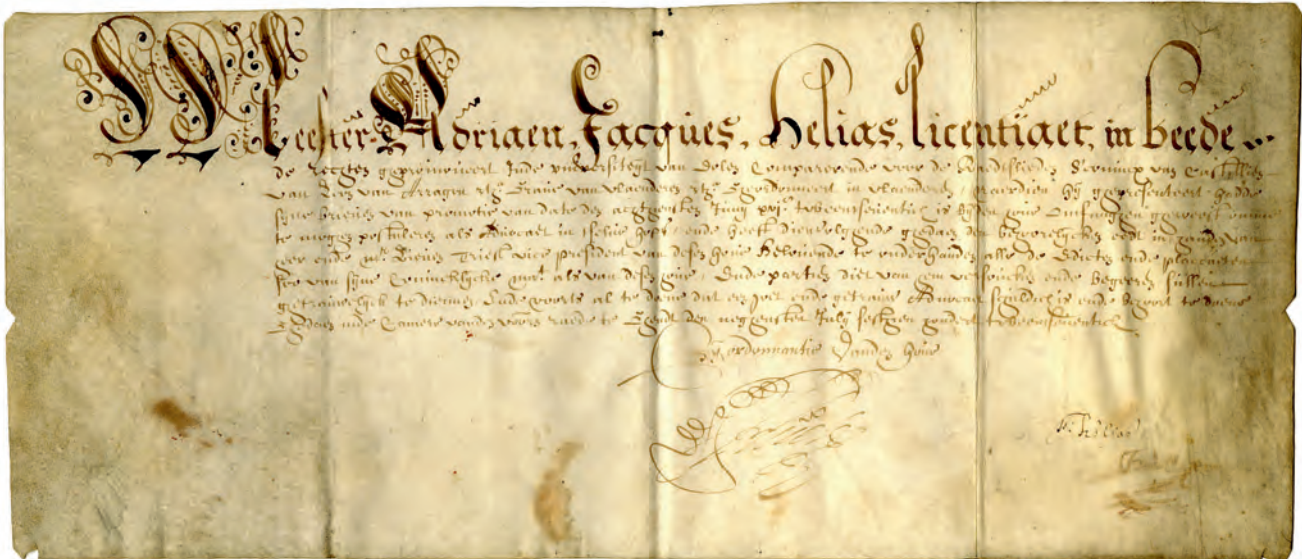 Meester Adriaen, Jacques, Helias, licentiaet, in beede
de rechten gepromoveert Inde universiteyt van Comparerende voor de Raedtslieden Coninck van Castillien
van van Arragon Grave van Vlaenderen Gheordonneert in Vlaenderen, naerdien hy gepresenteert hadde
syne brieven van promotie van date den achtsten tweentseventich is by den hove ontfanghen geweest omme
te moghen postuleren als Advocaet in hove, ende heeft dienvolgende ghedaen den behoorelycken eedt in handen van
heer ende Triest vice president van desen hove belovende te onderhouden alle de Edicten ende placcaeten
soo van syne Conincklycke als van desen hove, Ende partien die van hem versoucken ende begheren sullen
ghetrauwelyck te dienen, Ende voorts al te doene dat een goet ende getrauw Advocaet schuldich is ende behoort te doene
Ghedaen inde Camere vanden raede te Ghendt den neghensten July sesthien hondert tweentseventich
By ordonnantie vanden hove